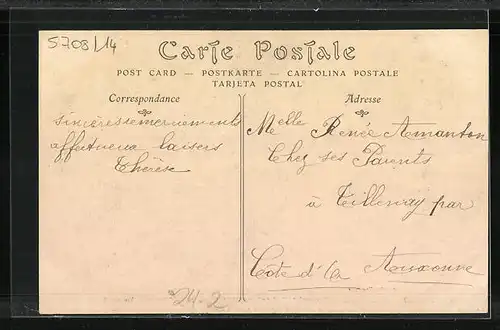 5708/14
Carte Postale
POST CARD — POSTKARTE — CARTOLINA POSTALE
TARJETA POSTAL
Correspondance
Adresse
sincères remerciements
affectueux baisers
Thérèse
Melle Renée Amanton
Chez ses Parents
à Tillenay par
Côte d'Or Auxonne
24-2